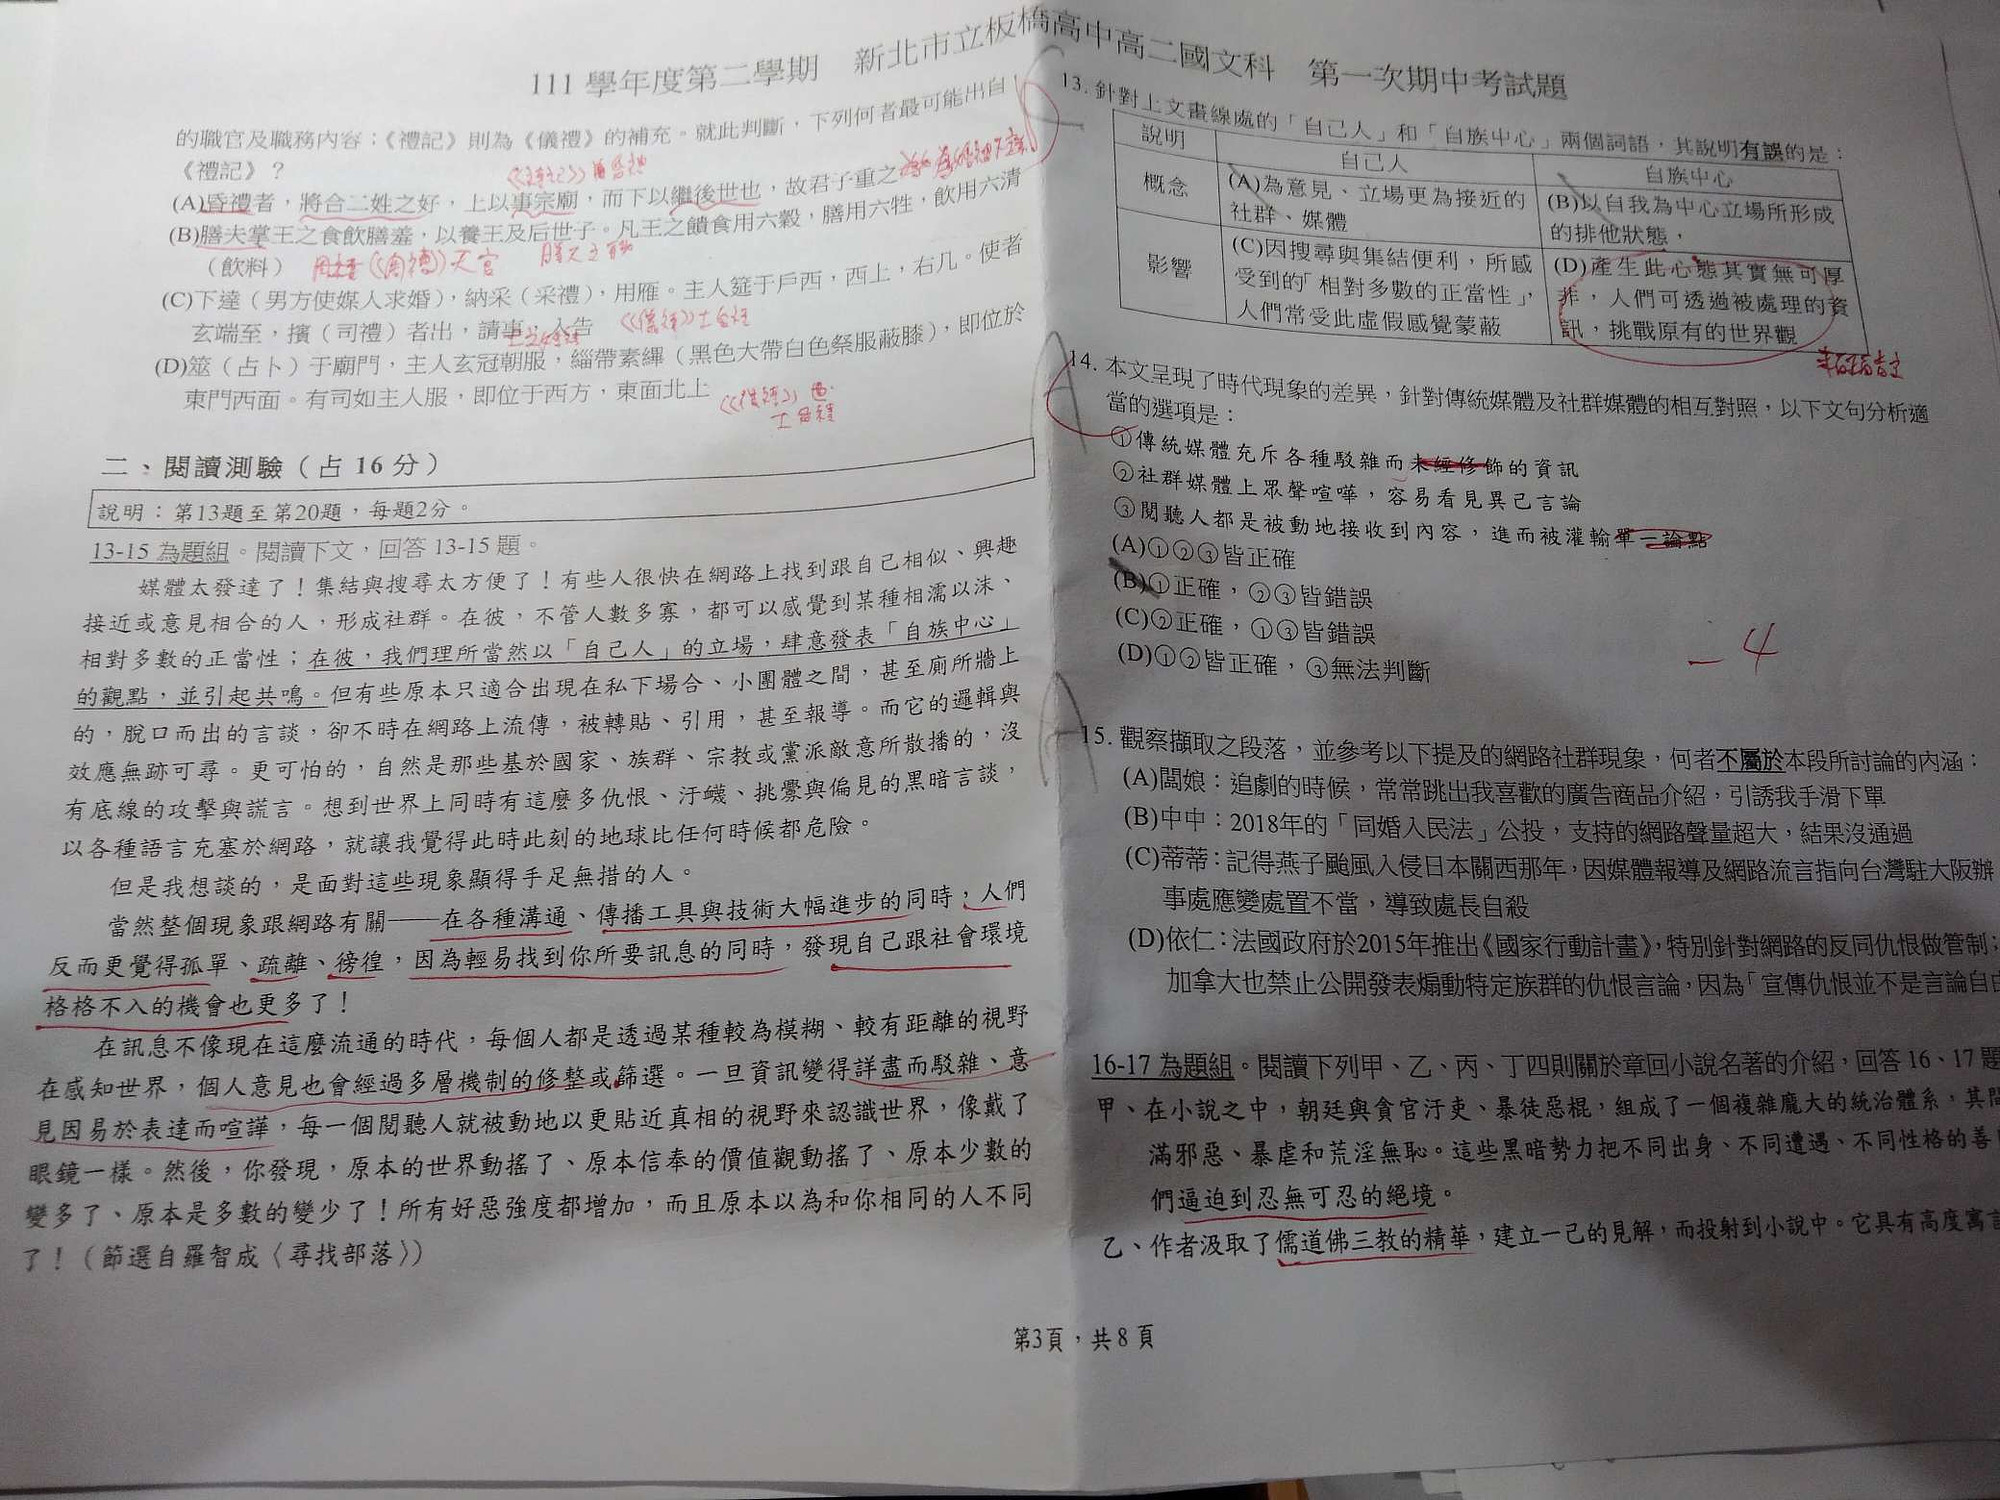 111 學年度第二學期　新北市立板橋高中高二國文科　第一次期中考試題
的職官及職務內容；《禮記》則為《儀禮》的補充。就此判斷，下列何者最可能出自
《禮記》？
(A)昏禮者，將合二姓之好，上以事宗廟，而下以繼後世也，故君子重之
(B)膳夫掌王之食飲膳羞，以養王及后世子。凡王之饋食用六穀，膳用六牲，飲用六清
（飲料）
天官
(C)下達（男方使媒人求婚），納采（采禮），用雁。主人筵于戶西，西上，右几。使者
玄端至，擯（司禮）者出，請事，入告
(D)筮（占卜）于廟門，主人玄冠朝服，緇帶素縪（黑色大帶白色祭服蔽膝），即位於
東門西面。有司如主人服，即位于西方，東面北上
二、閱讀測驗（占 16 分）
說明：第13題至第20題，每題2分。
13-15 為題組。閱讀下文，回答 13-15 題。
媒體太發達了！集結與搜尋太方便了！有些人很快在網路上找到跟自己相似、興趣
接近或意見相合的人，形成社群。在彼，不管人數多寡，都可以感覺到某種相濡以沫、
相對多數的正當性；在彼，我們理所當然以「自己人」的立場，肆意發表「自族中心」
的觀點，並引起共鳴。但有些原本只適合出現在私下場合、小團體之間，甚至廁所牆上
的，脫口而出的言談，卻不時在網路上流傳，被轉貼、引用，甚至報導。而它的邏輯與
效應無跡可尋。更可怕的，自然是那些基於國家、族群、宗教或黨派敵意所散播的，沒
有底線的攻擊與謊言。想到世界上同時有這麼多仇恨、汙衊、挑釁與偏見的黑暗言談，
以各種語言充塞於網路，就讓我覺得此時此刻的地球比任何時候都危險。
但是我想談的，是面對這些現象顯得手足無措的人。
當然整個現象跟網路有關——在各種溝通、傳播工具與技術大幅進步的同時，人們
反而更覺得孤單、疏離、徬徨，因為輕易找到你所要訊息的同時，發現自己跟社會環境
格格不入的機會也更多了！
在訊息不像現在這麼流通的時代，每個人都是透過某種較為模糊、較有距離的視野
在感知世界，個人意見也會經過多層機制的修整或篩選。一旦資訊變得詳盡而駁雜、意
見因易於表達而喧譁，每一個閱聽人就被動地以更貼近真相的視野來認識世界，像戴了
眼鏡一樣。然後，你發現，原本的世界動搖了、原本信奉的價值觀動搖了、原本少數的
變多了、原本是多數的變少了！所有好惡強度都增加，而且原本以為和你相同的人不同
了！（節選自羅智成〈尋找部落〉）
13. 針對上文畫線處的「自己人」和「自族中心」兩個詞語，其說明有誤的是：
說明　自己人　自族中心
概念　(A)為意見、立場更為接近的社群、媒體　(B)以自我為中心立場所形成的排他狀態，
影響　(C)因搜尋與集結便利，所感受到的「相對多數的正當性」，人們常受此虛假感覺蒙蔽　(D)產生此心態其實無可厚非，人們可透過被處理的資訊，挑戰原有的世界觀
14. 本文呈現了時代現象的差異，針對傳統媒體及社群媒體的相互對照，以下文句分析適
當的選項是：
①傳統媒體充斥各種駁雜而未經修飾的資訊
②社群媒體上眾聲喧嘩，容易看見異己言論
③閱聽人都是被動地接收到內容，進而被灌輸單一論點
(A)①②③皆正確
(B)①正確，②③皆錯誤
(C)②正確，①③皆錯誤
(D)①②皆正確，③無法判斷
-4
15. 觀察擷取之段落，並參考以下提及的網路社群現象，何者不屬於本段所討論的內涵：
(A)闆娘：追劇的時候，常常跳出我喜歡的廣告商品介紹，引誘我手滑下單
(B)中中：2018年的「同婚入民法」公投，支持的網路聲量超大，結果沒通過
(C)蒂蒂：記得燕子颱風入侵日本關西那年，因媒體報導及網路流言指向台灣駐大阪辦
事處應變處置不當，導致處長自殺
(D)依仁：法國政府於2015年推出《國家行動計畫》，特別針對網路的反同仇恨做管制；
加拿大也禁止公開發表煽動特定族群的仇恨言論，因為「宣傳仇恨並不是言論自由
16-17 為題組。閱讀下列甲、乙、丙、丁四則關於章回小說名著的介紹，回答 16、17 題
甲、在小說之中，朝廷與貪官汙吏、暴徒惡棍，組成了一個複雜龐大的統治體系，其間
滿邪惡、暴虐和荒淫無恥。這些黑暗勢力把不同出身、不同遭遇、不同性格的善
們逼迫到忍無可忍的絕境。
乙、作者汲取了儒道佛三教的精華，建立一己的見解，而投射到小說中。它具有高度寓言
第3頁，共8頁